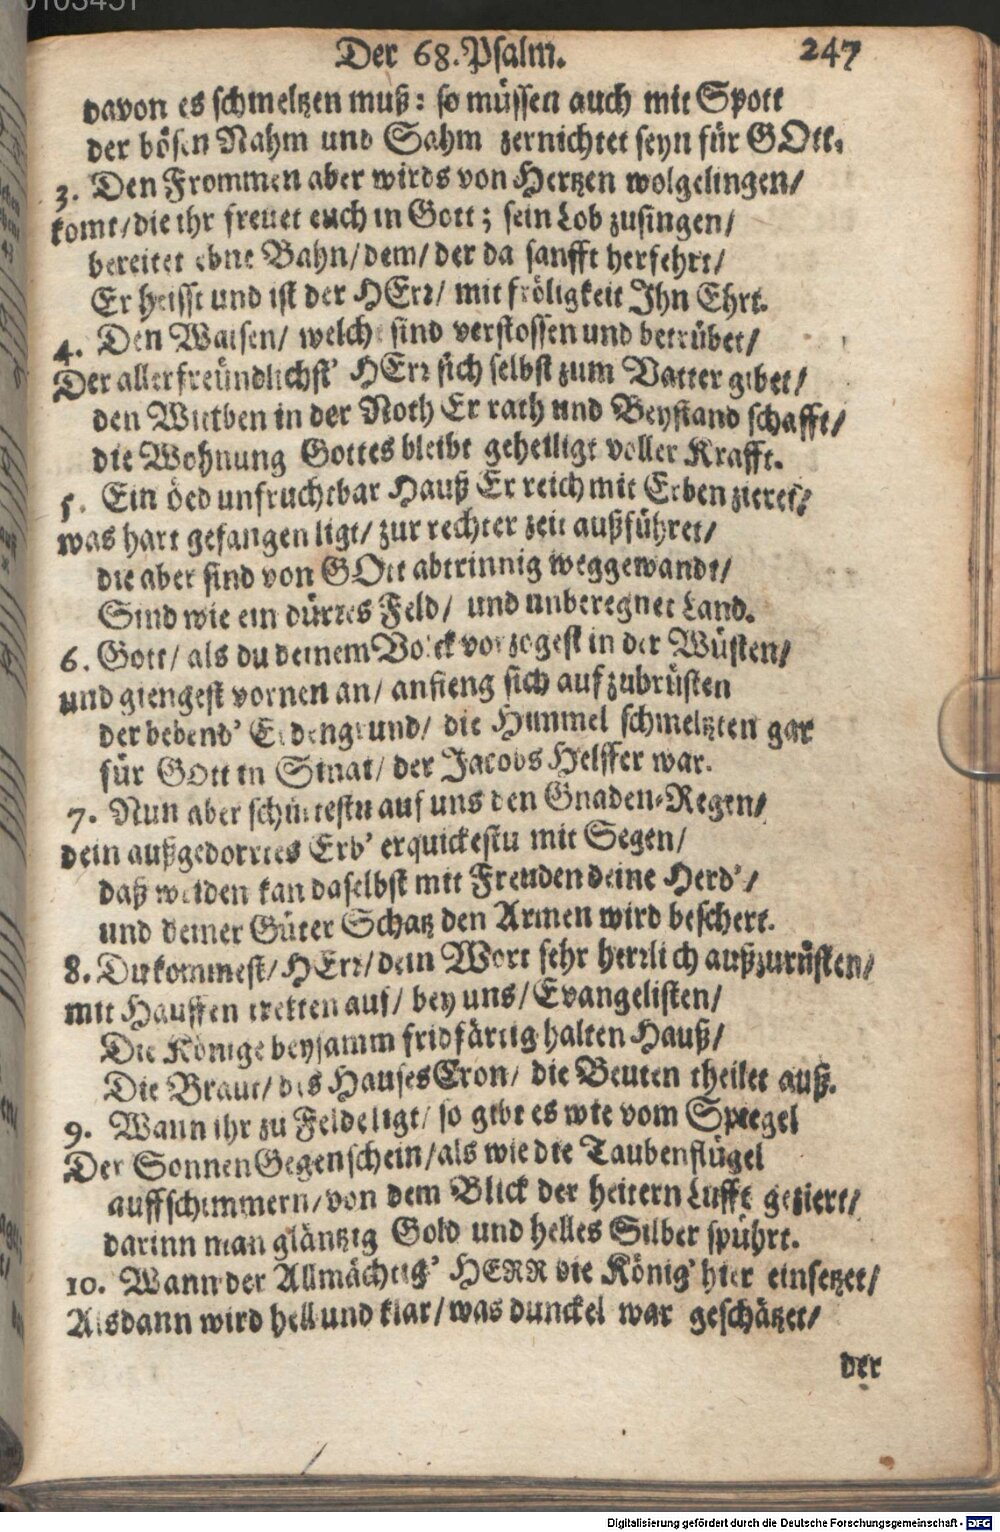 Der 68. Psalm. 247
davon es schmeltzen muß: so müssen auch mit Spott
der bösen Nahm und Sahm zernichtet seyn für GOtt.
3. Den Frommen aber wirds von Hertzen wolgelingen/
komt/die ihr freuet euch in Gott; sein Lob zusingen/
bereitet ebne Bahn/dem/der da sanfft herfehrt/
Er heisst und ist der HErr/ mit fröligkeit Ihn Ehrt.
4. Den Waisen/ welche sind verstossen und betrübet/
Der allerfreündlichst' HErr sich selbst zum Vatter gibet/
den Witben in der Noth Er rath und Beystand schafft/
die Wohnung Gottes bleibt geheiligt voller Krafft.
5. Ein öed unfruchtbar Hauß Er reich mit Erben zieret/
was hart gefangen ligt/ zur rechter zeit außführet/
die aber sind von GOtt abtrinnig weggewandt/
Sind wie ein dürres Feld/ und unberegnet Land.
6. Gott/ als du deinem Volck vorzogest in der Wüsten/
und giengest vornen an/ anfieng sich aufzubrüsten
der bebend' Erdengrund/ die Himmel schmeltzten gar
für GOtt in Sinai/ der Jacobs Helffer war.
7. Nun aber schüttestu auf uns den Gnaden-Regen/
dein außgedorrtes Erb' erquickestu mit Segen/
daß weiden kan daselbst mit Freuden deine Herd'/
und deiner Güter Schatz den Armen wird beschert.
8. Du kommest/HErr/dein Wort sehr herrlich außzurüsten/
mit Hauffen tretten auf/ bey uns/ Evangelisten/
Die Könige beysamm fridfärtig halten Hauß/
Die Braut/ des Hauses Cron/ die Beuten theilet auß.
9. Wann ihr zu Felde ligt/ so gibt es wie vom Spiegel
Der Sonnen Gegenschein/als wie die Taubenflügel
auffschimmern/von dem Blick der heitern Lufft geziert/
darinn man gläntzig Gold und helles Silber spührt.
10. Wann der Allmächtig' HERR die König' hier einsetzet/
Alsdann wird hell und klar/was dunckel war geschätzet/
der
Digitalisierung gefördert durch die Deutsche Forschungsgemeinschaft - DFG